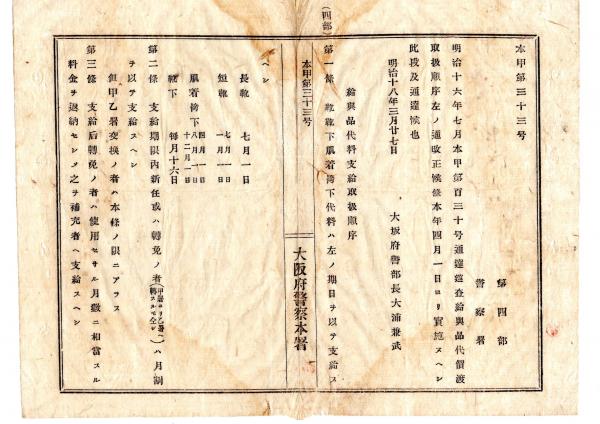 本甲第三十三号
第四部
警察署
明治十六年七月本甲第百三十号通達巡査給與品代價渡
取扱順序左ノ通改正候條本年四月一日ヨリ實施スヘシ
此段及通達候也
明治十八年三月廿七日
大坂府警部長大浦兼武
給與品代料支給取扱順序
第一條 靴靴下肌着袴下代料ハ左ノ期日ヲ以テ支給ス
(四部)
本甲第三十三号
大阪府警察本署
ヘシ
長靴 七月一日
短靴 七月一日 一月一日
肌着袴下 四月一日 八月一日 十二月一日
靴下 每月十六日
第二條 支給期限內新任或ハ轉免ノ者(甲署ヨリ乙署ヘ轉スルモ仝シ)ハ月割
ヲ以テ支給スヘシ
但甲乙署交換ノ者ハ本條ノ限ニアラス
第三條 支給后轉免ノ者ハ使用セサル月數ニ相當スル
料金ヲ返納セシメ之ヲ補充者ヘ支給スヘシ